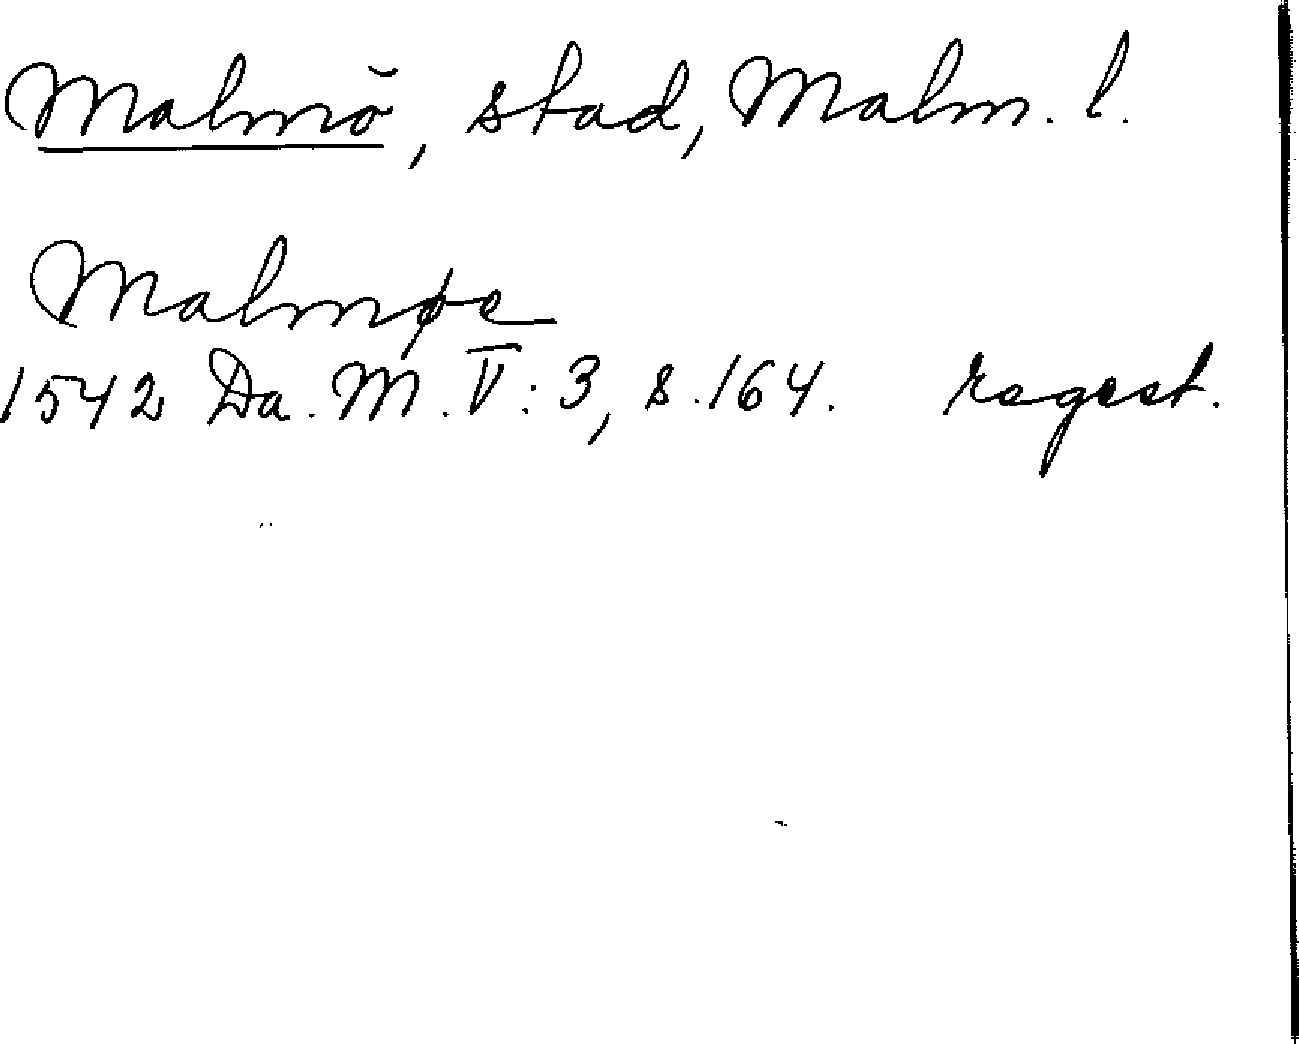 Malmö, stad, Malm. l.
Malmøe
1542 Da. M. V: 3, s. 164. regest.